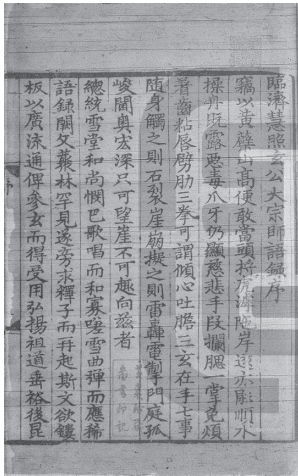 臨濟慧照玄公大宗師語録序
竊以黄蘗山高便敢當頭捋虎滹沱岸遠亦能順水
操舟既露惡毒爪牙仍顯慈悲手段攔腮一掌免煩
著齒粘唇劈肋三拳可謂傾心吐膽三玄在手七事
隨身觸之則石裂崖崩擬之則雷轟電掣門庭孤
峻閫奥宏深只可望崖不可趣向兹者
總統雪堂和尚憫巴歌唱而和寡嗟雪曲彈而應稀
語録闕文叢林罕見遂旁求釋子而再起斯文欲鏤
板以廣流通俾參玄而得受用弘揚祖道垂裕後昆